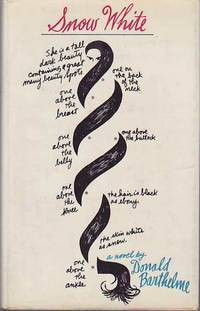 Snow White
She is a tall
dark beauty
containing a great
many beauty spots:
one on
the back
of the
neck
one
above
the
breast
one
above
the
belly
one above
the buttock
one
above
the
knee
the hair is black
as ebony,
the skin white
as snow.
one
above
the
ankle
a novel by
Donald
Barthelme